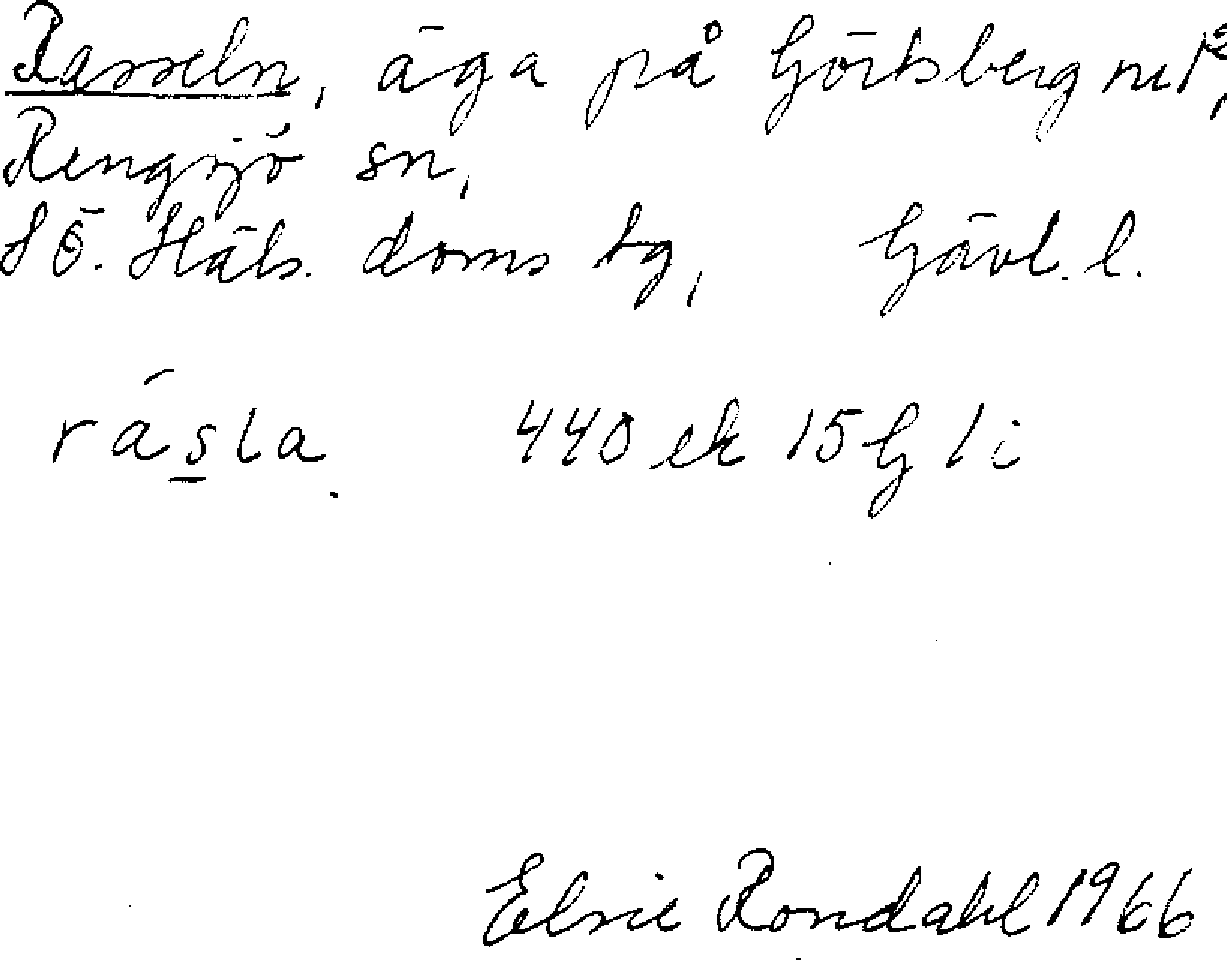 Rasseln, äga på Görtsberg nr 1²,
Rengsjö sn,
SÖ. Häls. doms tg, Gävl. l.
rásla 440 ek 15 G 1 i
Elsie Rondahl 1966